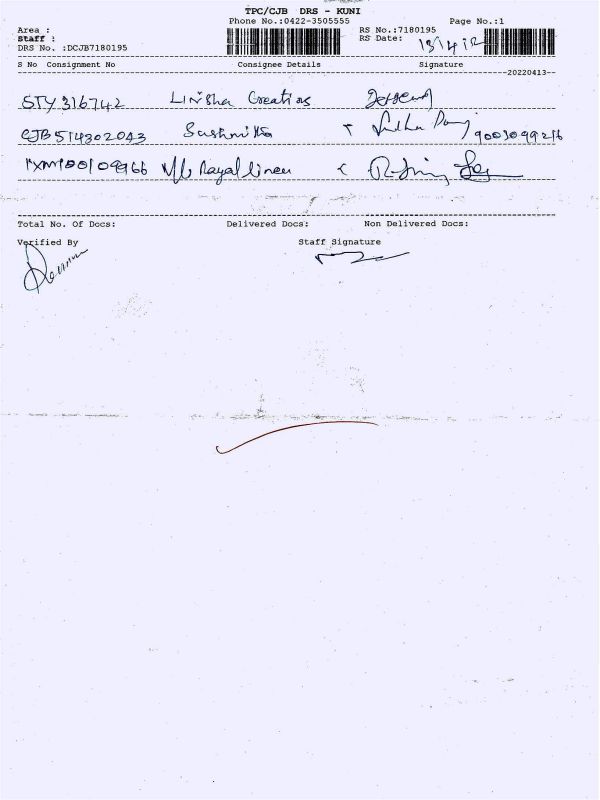 TPC/CJB DRS - KUNI
Phone No.:0422-3505555 Page No.:1
Area : RS No.:7180195
Staff : RS Date: 13/4/22
DRS No. :DCJB7180195
S No Consignment No Consignee Details Signature
20220413
STY 316742 Linisha Creations
CJB514302043 Sushmitha Sudha 9003099216
100109966 M/s Rayal linen
Total No. Of Docs: Delivered Docs: Non Delivered Docs:
Verified By Staff Signature